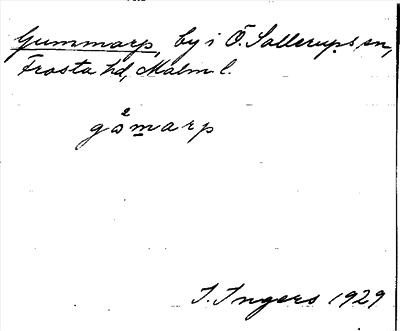 Gummarp, by i Ö. Sallerups sn,
Frosta hd, Malm. l.
gåmarp
I. Ingers 1929